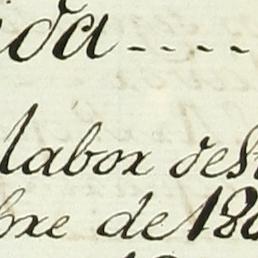 ida ....
labor des
bre de 18